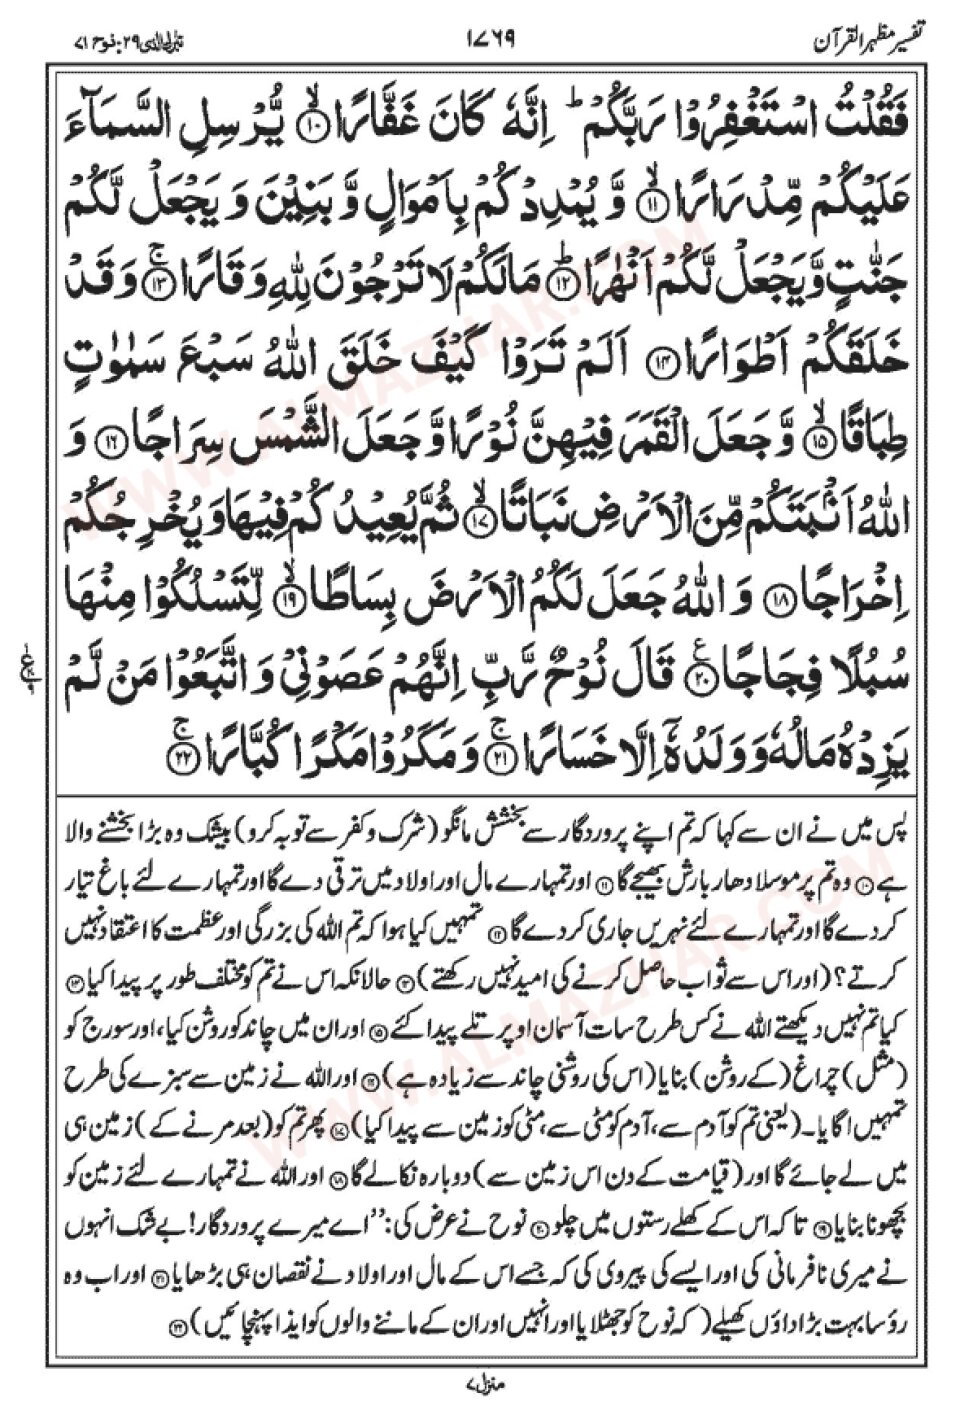 تفسیر مظہر القرآن
۱۷۶۹
تبٰرک الذی ۲۹: نوح ۷۱
فَقُلْتُ اسْتَغْفِرُوْا رَبَّكُمْ ؕ اِنَّهٗ كَانَ غَفَّارًا ۙ﴿۱۰﴾ يُّرْسِلِ السَّمَآءَ
عَلَيْكُمْ مِّدْرَارًا ۙ﴿۱۱﴾ وَّ يُمْدِدْكُمْ بِاَمْوَالٍ وَّ بَنِيْنَ وَ يَجْعَلْ لَّكُمْ
جَنّٰتٍ وَّ يَجْعَلْ لَّكُمْ اَنْهٰرًا ؕ﴿۱۲﴾ مَا لَكُمْ لَا تَرْجُوْنَ لِلّٰهِ وَقَارًا ۚ﴿۱۳﴾ وَ قَدْ
خَلَقَكُمْ اَطْوَارًا ﴿۱۴﴾ اَلَمْ تَرَوْا كَيْفَ خَلَقَ اللّٰهُ سَبْعَ سَمٰوٰتٍ
طِبَاقًا ۙ﴿۱۵﴾ وَّ جَعَلَ الْقَمَرَ فِيْهِنَّ نُوْرًا وَّ جَعَلَ الشَّمْسَ سِرَاجًا ﴿۱۶﴾ وَ
اللّٰهُ اَنْۢبَتَكُمْ مِّنَ الْاَرْضِ نَبَاتًا ۙ﴿۱۷﴾ ثُمَّ يُعِيْدُكُمْ فِيْهَا وَ يُخْرِجُكُمْ
اِخْرَاجًا ﴿۱۸﴾ وَ اللّٰهُ جَعَلَ لَكُمُ الْاَرْضَ بِسَاطًا ۙ﴿۱۹﴾ لِّتَسْلُكُوْا مِنْهَا
سُبُلًا فِجَاجًا ﴿۲۰﴾ۧ قَالَ نُوْحٌ رَّبِّ اِنَّهُمْ عَصَوْنِيْ وَ اتَّبَعُوْا مَنْ لَّمْ
يَزِدْهُ مَالُهٗ وَ وَلَدُهٗۤ اِلَّا خَسَارًا ۚ﴿۲۱﴾ وَ مَكَرُوْا مَكْرًا كُبَّارًا ۚ﴿۲۲﴾
پس میں نے ان سے کہا کہ تم اپنے پروردگار سے بخشش مانگو (شرک و کفر سے توبہ کرو) بیشک وہ بڑا بخشنے والا
ہے ﴿۱۰﴾ وہ تم پر موسلا دھار بارش بھیجے گا ﴿۱۱﴾ اور تمہارے مال اور اولاد میں ترقی دے گا اور تمہارے لئے باغ تیار
کردے گا اور تمہارے لئے نہریں جاری کردے گا ﴿۱۲﴾ تمہیں کیا ہوا کہ تم اللہ کی بزرگی اور عظمت کا اعتقاد نہیں
کرتے؟ (اور اس سے ثواب حاصل کرنے کی امید نہیں رکھتے) ﴿۱۳﴾ حالانکہ اس نے تم کو مختلف طور پر پیدا کیا ﴿۱۴﴾
کیا تم نہیں دیکھتے اللہ نے کس طرح سات آسمان اوپر تلے پیدا کئے ﴿۱۵﴾ اور ان میں چاند کو روشن کیا، اور سورج کو
(مثل) چراغ (کے روشن) بنایا (اس کی روشنی چاند سے زیادہ ہے) ﴿۱۶﴾ اور اللہ نے زمین سے سبزے کی طرح
تمہیں اگایا۔ (یعنی تم کو آدم سے، آدم کو مٹی سے، مٹی کو زمین سے پیدا کیا) ﴿۱۷﴾ پھر تم کو (بعد مرنے کے) زمین ہی
میں لے جائے گا اور (قیامت کے دن اس زمین سے) دوبارہ نکالے گا ﴿۱۸﴾ اور اللہ نے تمہارے لئے زمین کو
بچھونا بنایا ﴿۱۹﴾ تاکہ اس کے کھلے رستوں میں چلو ﴿۲۰﴾ نوح نے عرض کی: ’’اے میرے پروردگار! بے شک انہوں
نے میری نافرمانی کی اور ایسے کی پیروی کی کہ جسے اس کے مال اور اولاد نے نقصان ہی بڑھایا ﴿۲۱﴾ اور اب وہ
رؤسا بہت بڑا داؤں کھیلے (کہ نوح کو جھٹلایا اور انہیں اور ان کے ماننے والوں کو ایذا پہنچائیں) ﴿۲۲﴾
منزل ۷
WWW.ALMAZHAR.COM
WWW.ALMAZHAR.COM